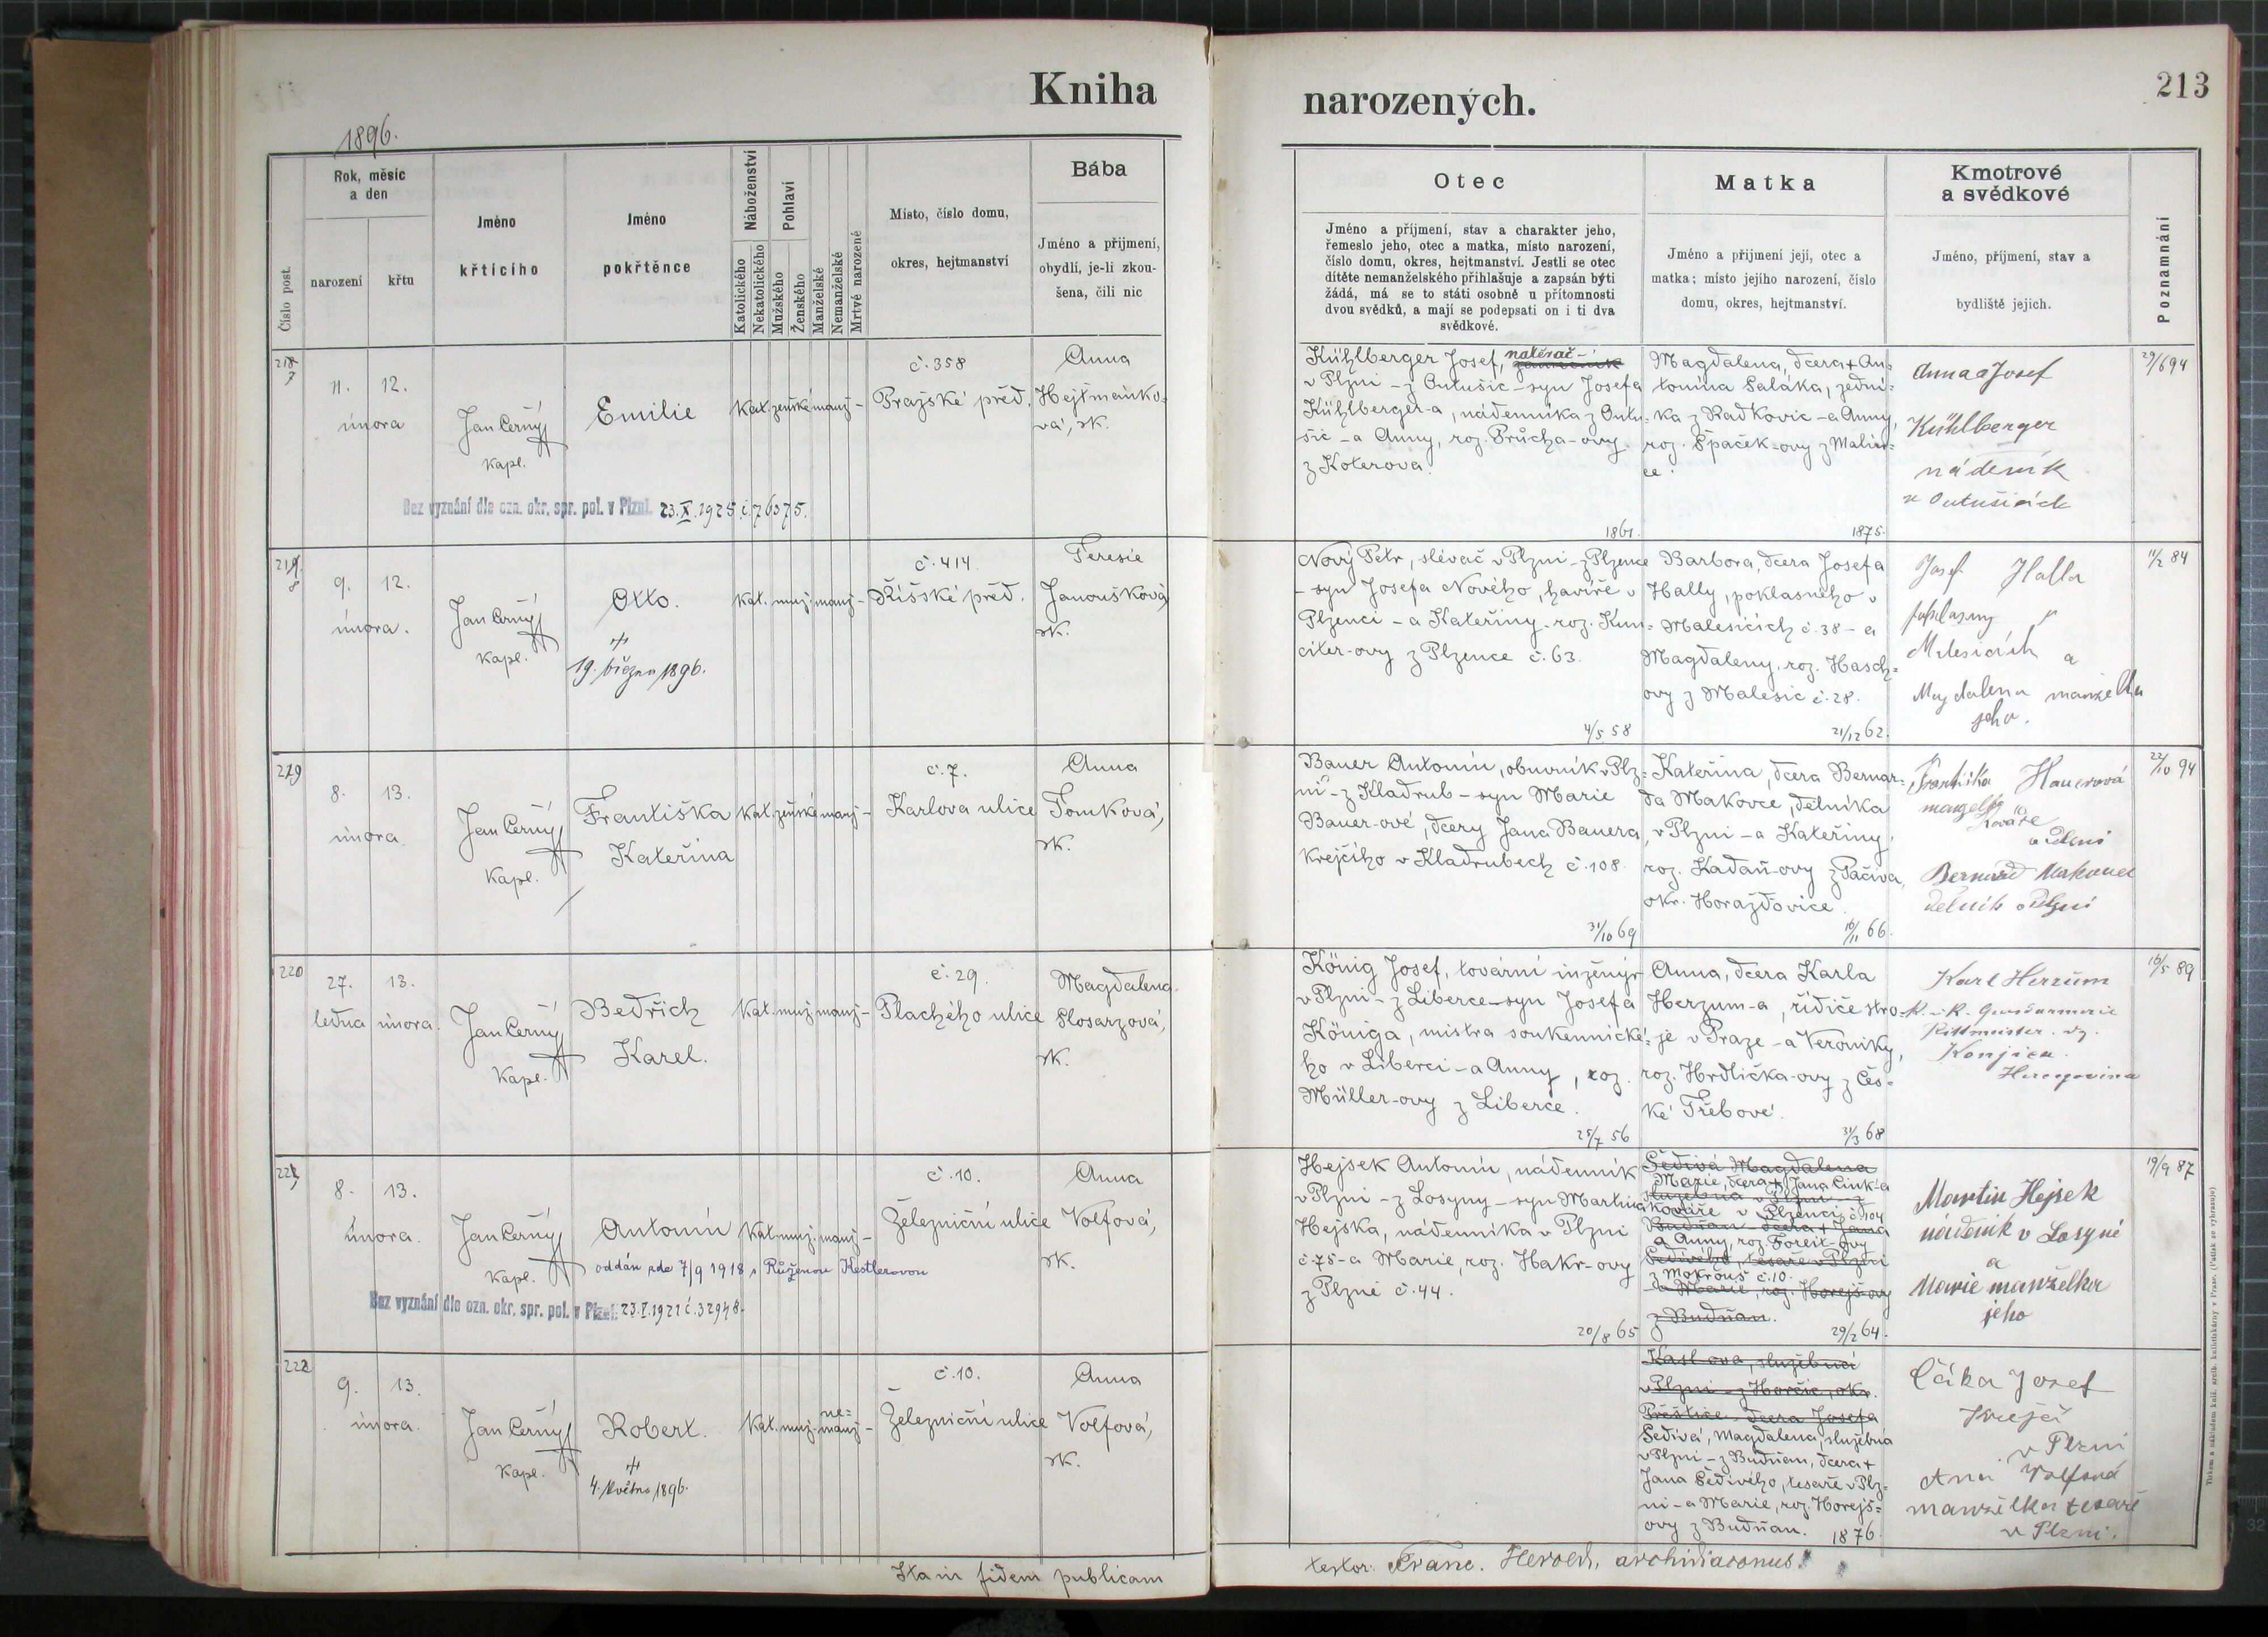 Kniha
1896.
Číslo post.
Rok, měsíc
a den
narození
křtu
Jméno
křtícího
Jméno
pokřtěnce
Náboženství
Katolického
Nekatolického
Pohlaví
Mužského
Ženského
Manželské
Nemanželské
Mrtvě narozené
Místo, číslo domu,
okres, hejtmanství
Bába
Jméno a příjmení,
obydlí, je-li zkou-
šena, čili nic
217
11. 12.
února
Jan Černý
kapl.
Emilie
kat. ženské manž -
č. 358
Pražské před.
Anna
Hejtmánko-
vá, zk.
Bez vyznání dle ozn. okr. spr. pol. v Plzni. 23.X.1925 č. 76375.
218
9. 12.
února.
Jan Černý
kapl.
Otto.
19. března 1896.
kat. muž. manž -
č. 414
Říšské před.
Teresie
Janoušková
zk.
219
8. 13.
února
Jan Černý
kapl.
Františka
Kateřina
kat. ženské manž -
č. 7.
Karlova ulice
Anna
Tomková,
zk.
220
27. 13.
ledna února.
Jan Černý
kapl.
Bedřich
Karel.
kat. muž. manž -
č. 29.
Plachého ulice
Magdalena
Slosarzová,
zk.
221
8. 13.
února.
Jan Černý
kapl.
Antonín
kat. muž. manž -
oddán zde 7/9 1918 s Růženou Kestlerovou
č. 10.
Železniční ulice
Anna
Volfová,
zk.
Bez vyznání dle ozn. okr. spr. pol. v Plzni. 23.I.1921 č. 32948.
222
9. 13.
února.
Jan Černý
kapl.
Robert.
4. května 1896.
kat. muž. ne=
manž -
č. 10.
Železniční ulice
Anna
Volfová,
zk.
Ita in fidem publicam
narozených.
213
Otec
Jméno a příjmení, stav a charakter jeho,
řemeslo jeho, otec a matka, místo narození,
číslo domu, okres, hejtmanství. Jestli se otec
dítěte nemanželského přihlašuje a zapsán býti
žádá, má se to státi osobně u přítomnosti
dvou svědků, a mají se podepsati on i ti dva
svědkové.
Matka
Jméno a příjmení její, otec a
matka; místo jejího narození, číslo
domu, okres, hejtmanství.
Kmotrové
a svědkové
Jméno, příjmení, stav a
bydliště jejich.
Poznamnání
Kühlberger Josef, natěrač -
v Plzni - z Óntušic - syn Josefa
Kühlberger-a, nádenníka z Óntu-
šic - a Anny, roz. Průcha-ovy
z Koterova.
1861.
Magdalena, dcera + An-
tonína Saláka, zední-
ka z Radkovic - a Anny,
roz. Špaček-ovy z Malin-
ce.
1875.
Anna a Josef
Kühlberger
nádeník
v Óntušicích
29/6 94
Nový Petr, slévač v Plzni - z Plzence
- syn Josefa Nového, havíře v
Plzenci - a Kateřiny, roz. Kun-
citer-ovy z Plzence č. 63.
4/5 58
Barbora, dcera Josefa
Hally, poklasného v
Malesicích č. 38 - a
Magdaleny, roz. Hasch-
ovy z Malesic č. 28.
21/12 62.
Josef Halla
poklasný v
Malesicích a
Magdalena manželka
jeho.
11/2 84
Bauer Antonín, obuvník v Plz-
ni - z Kladrub - syn Marie
Bauer-ové, dcery Jana Bauera,
krejčího v Kladrubech č. 108.
31/10 69
Kateřina, dcera Bernar-
da Makovce, dělníka
v Plzni - a Kateřiny,
roz. Kadaň-ovy z Pačiva,
okr. Horažďovice.
16/11 66.
Františka Hauerová
manželka
kováře
v Plzni
Bernard Makovec
dělník v Plzni
22/10 94
König Josef, tovární inženýr
v Plzni - z Liberce - syn Josefa
Königa, mistra soukennické-
ho v Liberci - a Anny, roz.
Müller-ovy z Liberce.
25/7 56
Anna, dcera Karla
Herzum-a, řídiče stro-
je v Praze - a Veroniky,
roz. Hrdlička-ovy z Čes-
ké Třebové.
31/3 68
Karl Herzum
K. u. K. Gensdarmerie
Rittmeister. zg.
Konjica.
Hercegovina
16/5 89
Hejsek Antonín, nádenník
v Plzni - z Losyny - syn Martina
Hejska, nádenníka v Plzni
č. 75 - a Marie, roz. Hakr-ovy
z Plzně č. 44.
20/8 65
Šedivá Magdalena
Marie, dcera + Jana Cink-a
služebná v Plzni - z
kováře v Plzenci č. 104
Budňan - dcera + Jana
a Anny, roz. Foreit-ovy
Šedivého, tesaře v Plzni
z Mokrouš č. 10.
a Marie, roz. Horejš-ovy
z Budňan.
29/2 64.
Martin Hejsek
nádeník v Losyné
a
Marie manželka
jeho
19/9 87
služebná
v Plzni - z Horšic, okr.
Přeštice - dcera Josefa
Šedivá, Magdalena, služebná
v Plzni - z Budňan, dcera +
Jana Šedivého, tesaře v Plz-
ni - a Marie, roz. Horejš-
ovy z Budňan. 1876.
Čáka Josef
krejčí
v Plzni
Anna Volfová
manželka tesaře
v Plzni.
testor: Franc. Herold, archidiaconus.